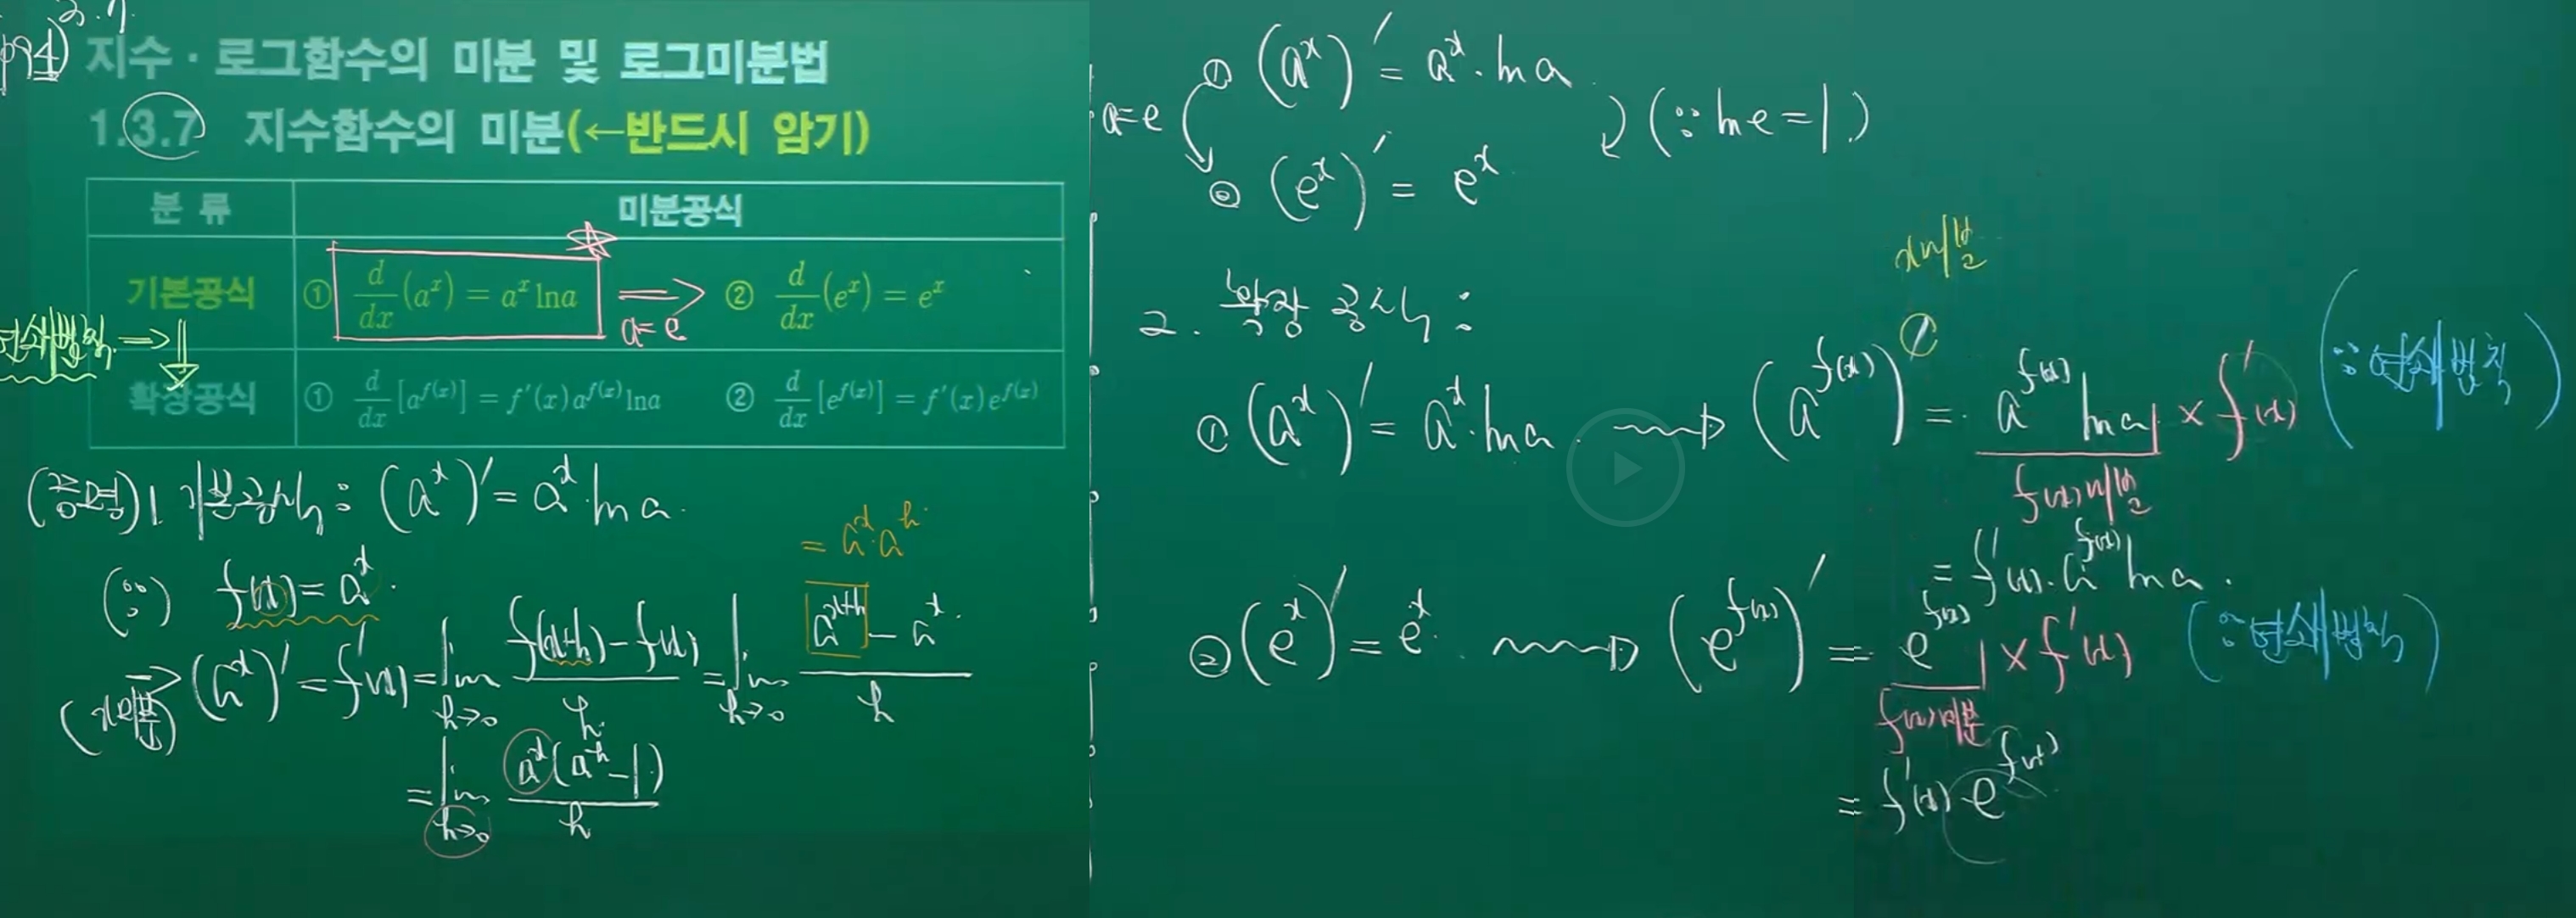 p94)
지수 · 로그함수의 미분 및 로그미분법
1.3.7 지수함수의 미분(←반드시 암기)
분 류 미분공식
기본공식 ① d/dx (a^x) = a^x lna ⟹ a=e ② d/dx (e^x) = e^x
연쇄법칙 ⇒ ⇓
확장공식 ① d/dx [a^{f(x)}] = f′(x)a^{f(x)}lna ② d/dx [e^{f(x)}] = f′(x)e^{f(x)}
(증명) 1. 기본공식 : (a^x)′ = a^x · ln a
(∵) f(x) = a^x.
= a^x · a^h
⇒ (a^x)′ = f′(x) = lim_{h→0} (f(x+h) − f(x))/h = lim_{h→0} (a^{x+h} − a^x)/h
(x미분)
= lim_{h→0} a^x(a^h − 1)/h
① (a^x)′ = a^x · ln a
a=e (∵ ln e = 1.)
② (e^x)′ = e^x
2. 확장공식 :
x미분
① (a^x)′ = a^x · ln a ⟿ (a^{f(x)})′ = a^{f(x)} ln a × f′(x) (∵ 연쇄법칙)
f(x)미분
= f′(x) · a^{f(x)} ln a.
② (e^x)′ = e^x. ⟿ (e^{f(x)})′ = e^{f(x)} × f′(x) (∵ 연쇄법칙)
f(x)미분
= f′(x) e^{f(x)}